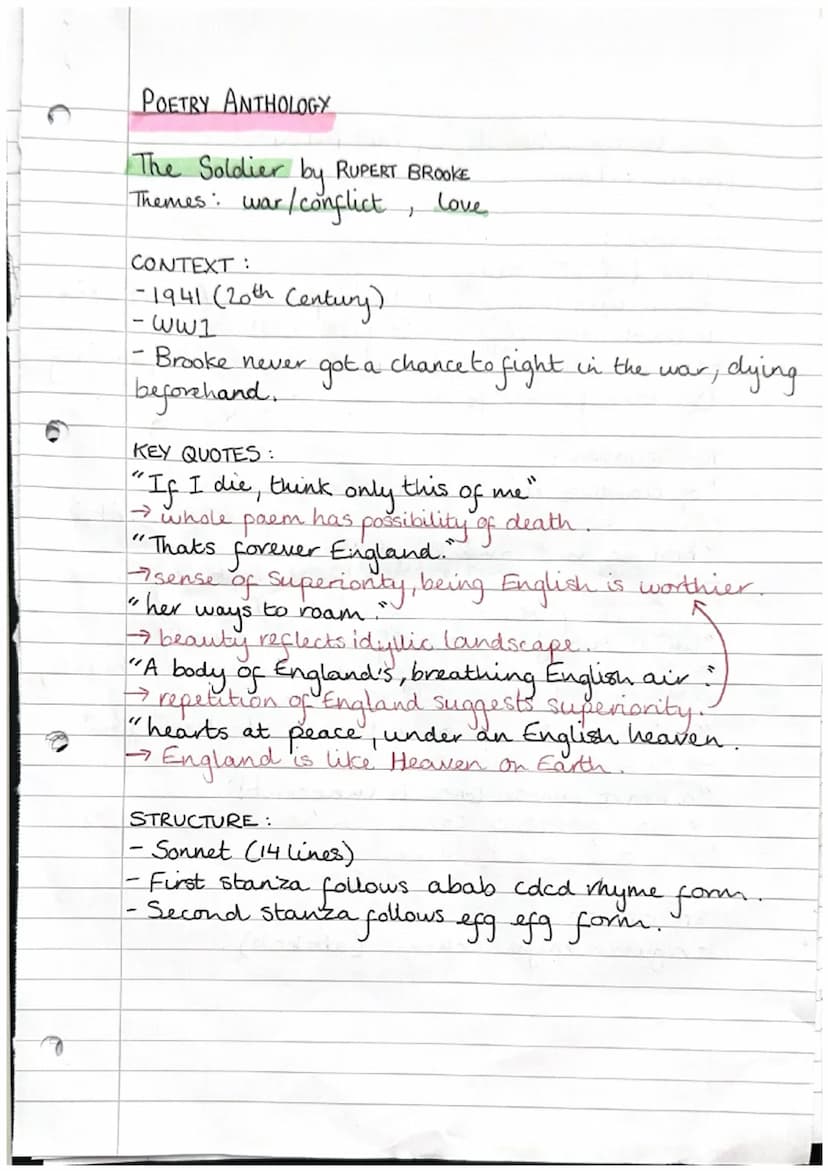 POETRY ANTHOLOGY
The Soldier by RUPERT BROOKE
Themes: war/conflict, love
CONTEXT:
- 1941 (20th Century)
- WW1
- Brooke never got a chance to fight in the war, dying
beforehand.
KEY QUOTES:
"If I die, think only this of me"
→ whole poem has possibility of death.
"Thats forever England."
→ sense of superiority, being English is worthier.
"her ways to roam."
→ beauty reflects idyllic landscape.
"A body of England's, breathing English air."
→ repetition of England suggests superiority.
"hearts at peace, under an English heaven.
→ England is like Heaven on Earth.
STRUCTURE:
- Sonnet (14 lines)
- First stanza follows abab cdcd rhyme form.
- Second stanza follows efg efg form.